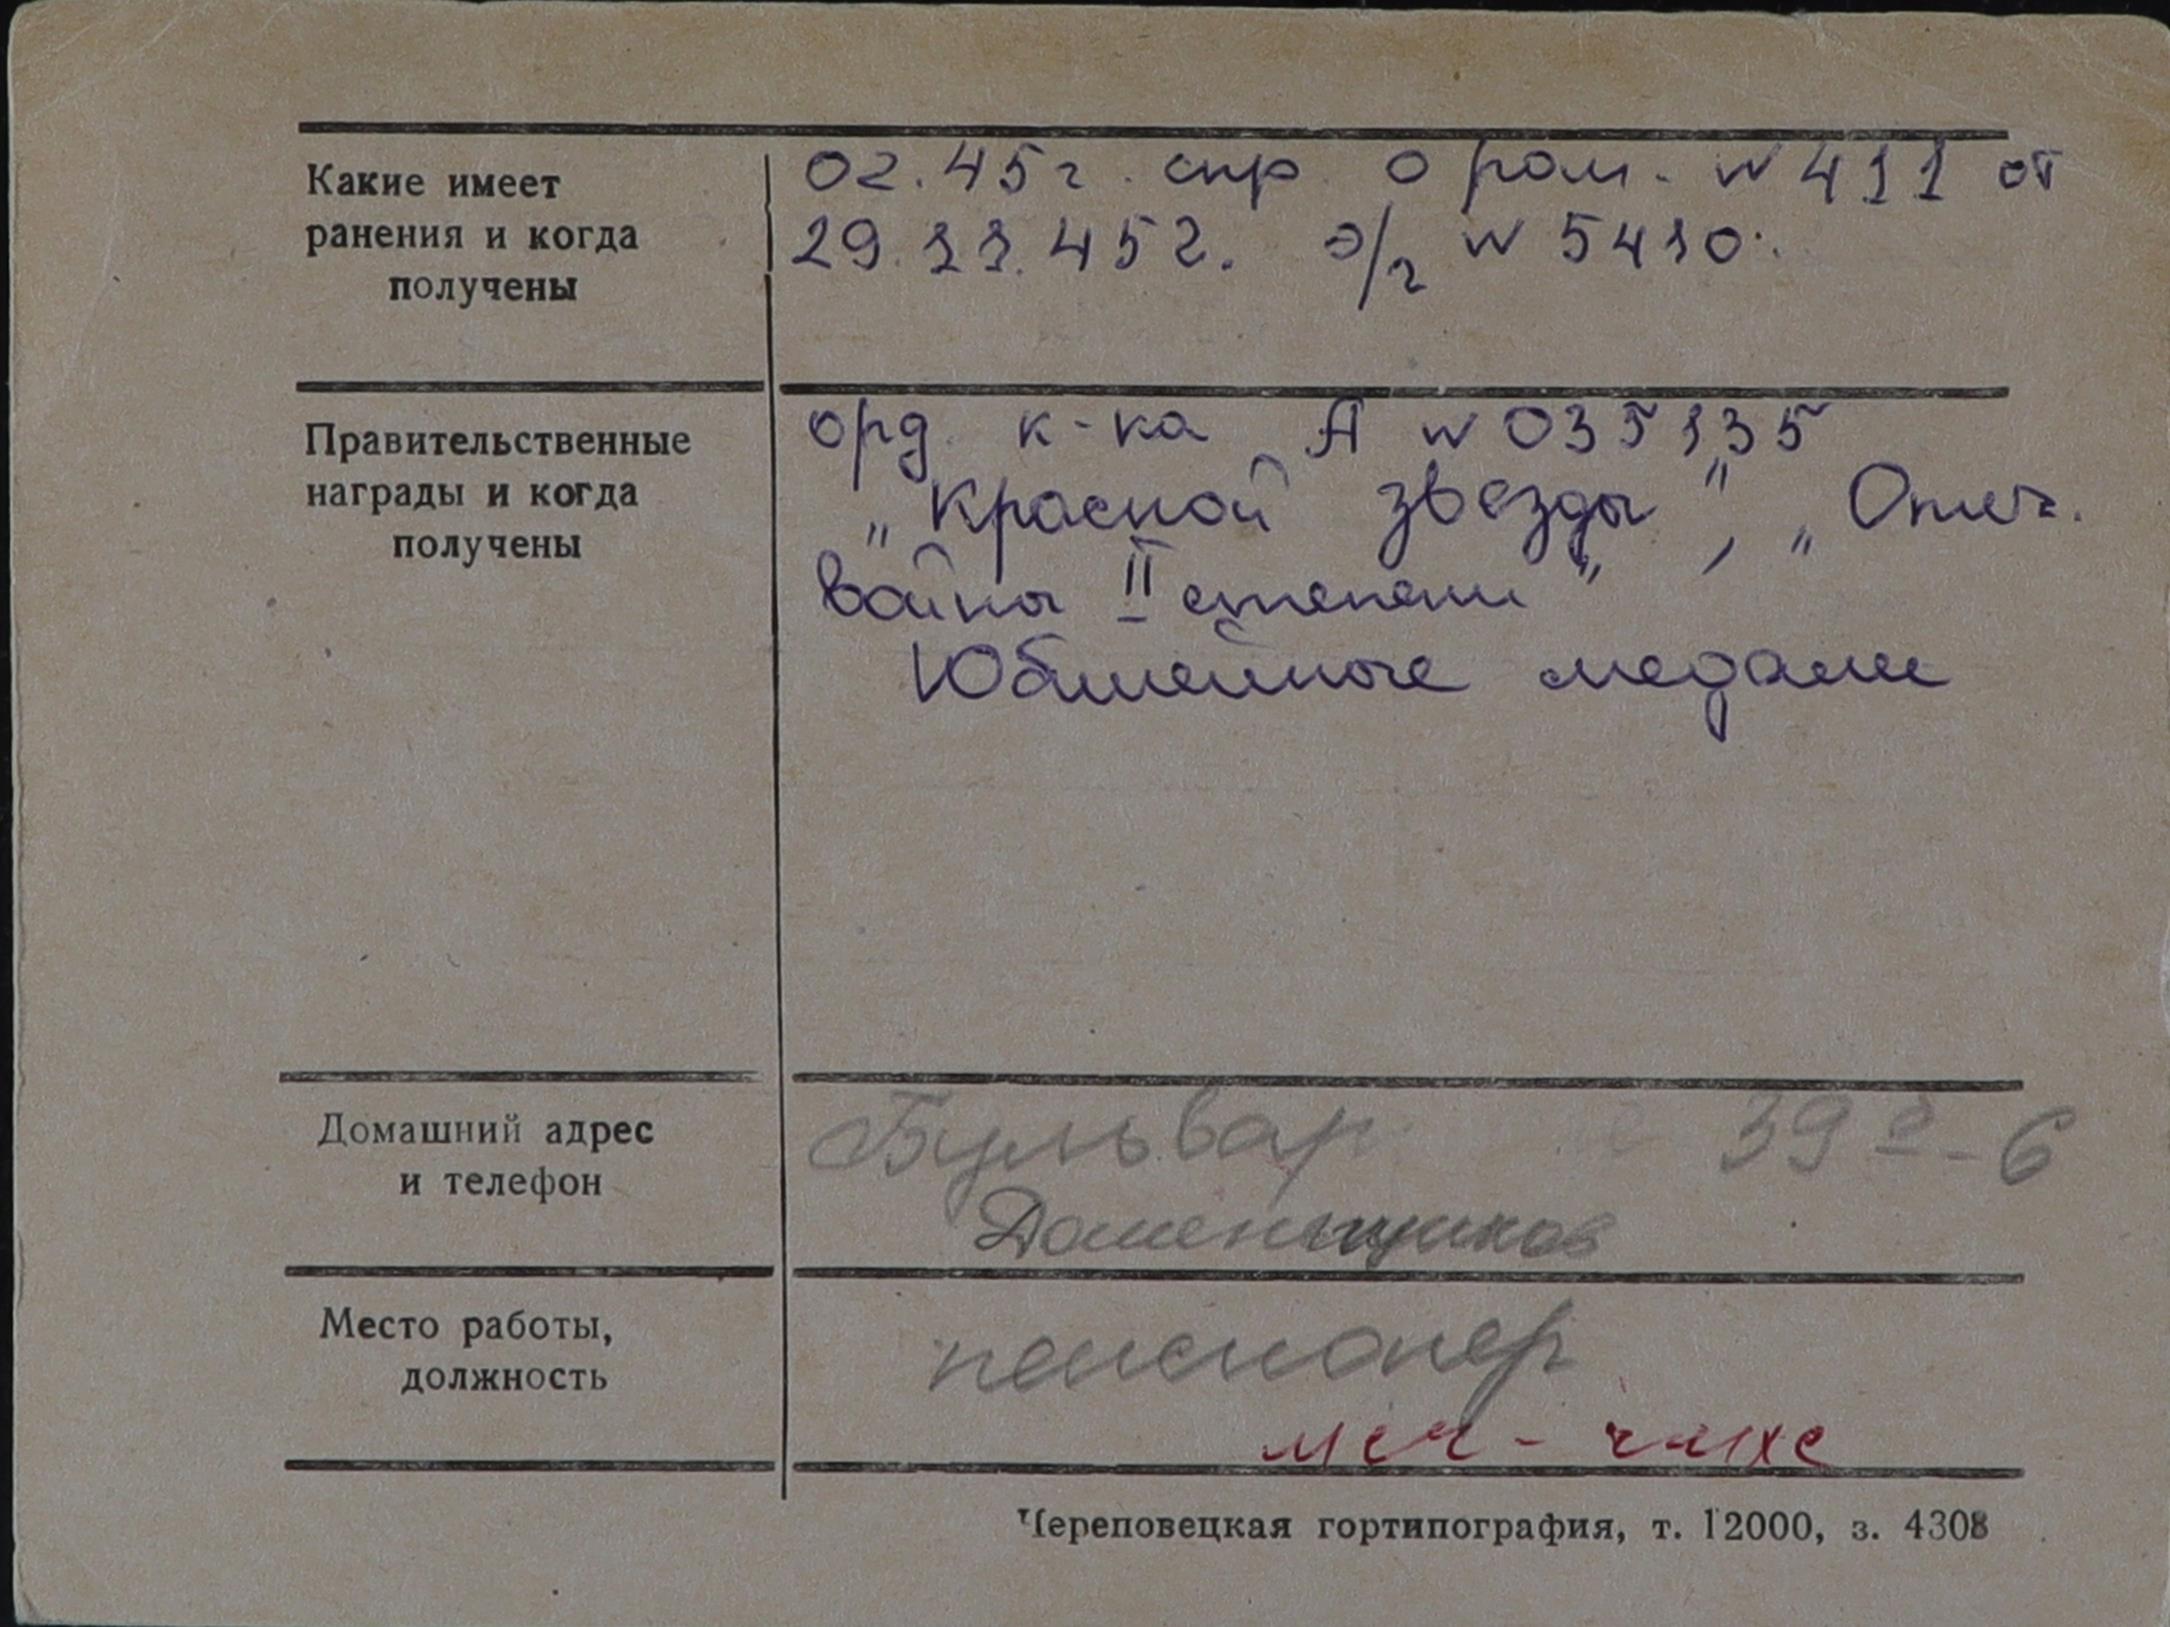 Какие имеет
ранения и когда
получены
02.45г. спр. о ран. N 411 от
29.11.45г. э/г N 5410.
Правительственные
награды и когда
получены
орд. к-ка А N 035135
„Красной звезды", „Отеч.
войны II степени"
Юбилейные медали
Домашний адрес
и телефон
Бульвар 39 - 6
Доменщиков
Место работы,
должность
пенсионер
Череповецкая гортипография, т. 12000, з. 4308